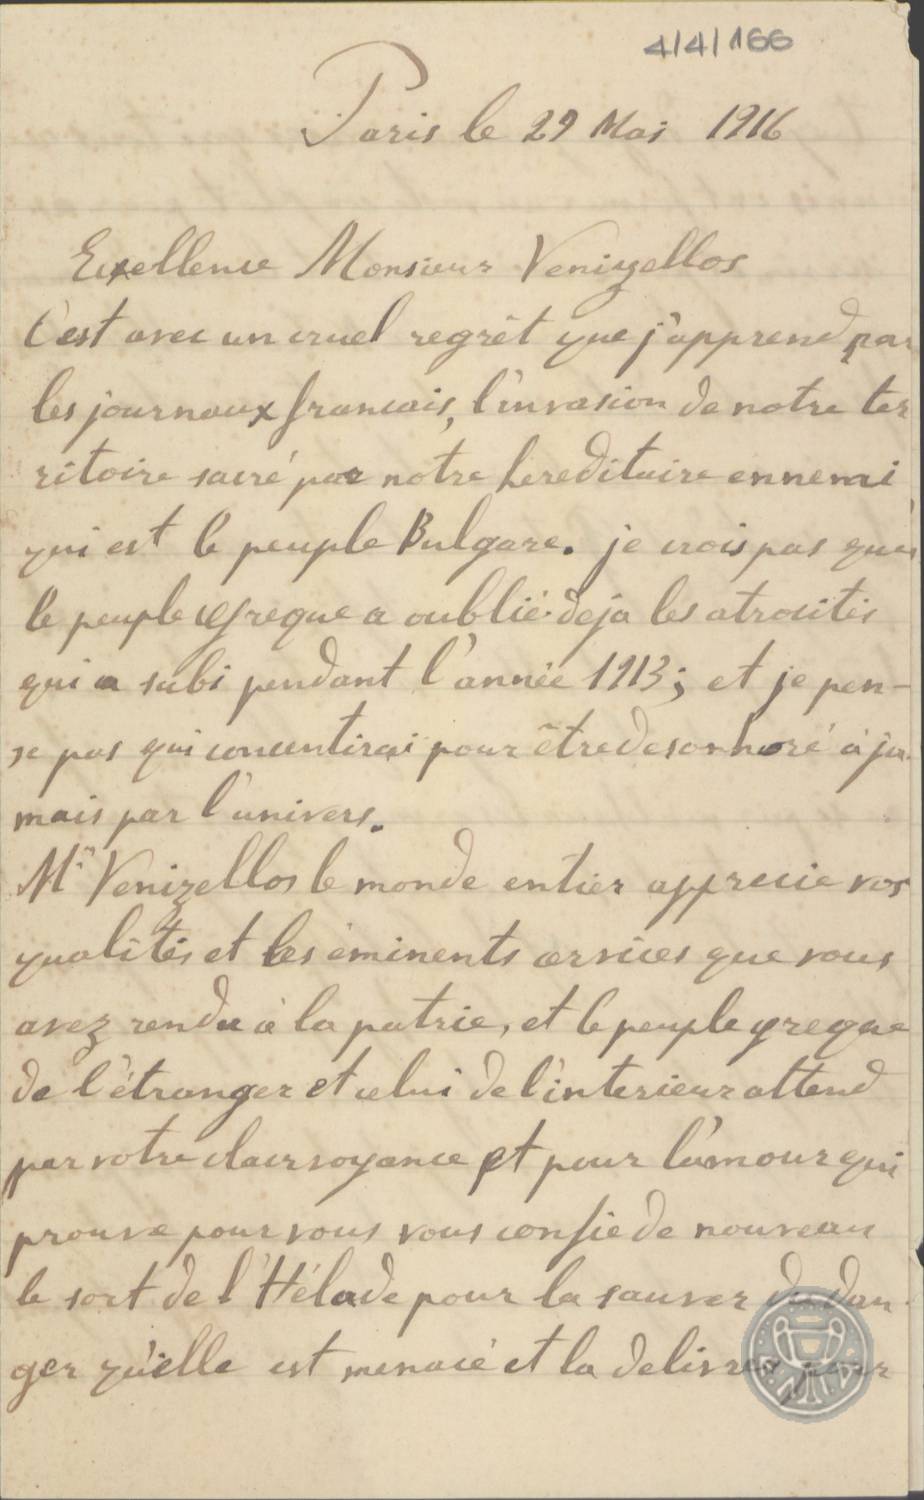 4/4/166
Paris le 29 Mai 1916
Exellence Monsieur Venizellos
C'est avec un cruel regrêt que j'apprend par
les journaux francais, l'invasion de notre ter
ritoire sacré par notre hereditaire ennemi
qui est le peuple Bulgare. je crois pas que
le peuple Greque a oublié deja les atrocités
qui a subi pendant l'année 1913; et je pen-
se pas qui concentirai pour être desonhoré à ja-
mais par l'univers.
Mr Venizellos le monde entier apprecie vos
qualités et les éminents cervices que vous
avez rendu à la patrie, et le peuple greque
de l'étranger et celui de l'interieur attend
par votre clairvoyance et pour l'amour qui
prouve pour vous vous confie de nouveau
le sort de l'Hélade pour la sauver du dan-
ger qu'elle est menacé et la delivrer pour